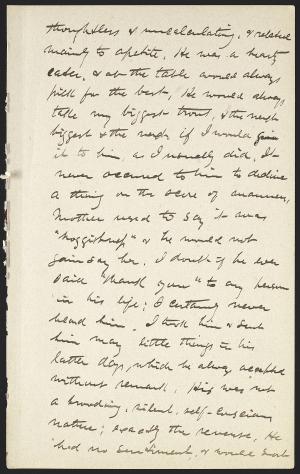 thoughtless & uncalculating, & related
mainly to apetite. He was a hearty
eater, & at the table would always
pick for the best. He would always
take my biggest trout, & the next
biggest & the next if I would give
it to him, as I usually did. It
never occured to him to decline
a thing on the score of manners.
Mother used to say it was
"hoggishness" & he would not
gain say her. I doubt if he ever
said "thank you" to any person
in his life; I certainly never
heard him. I took him & sent
him many little things in his
latter days, which he always accepted
without remark. His was not
a brooding, silent, self-conscious
nature; exactly the reverse. He
had no sentiment, & would